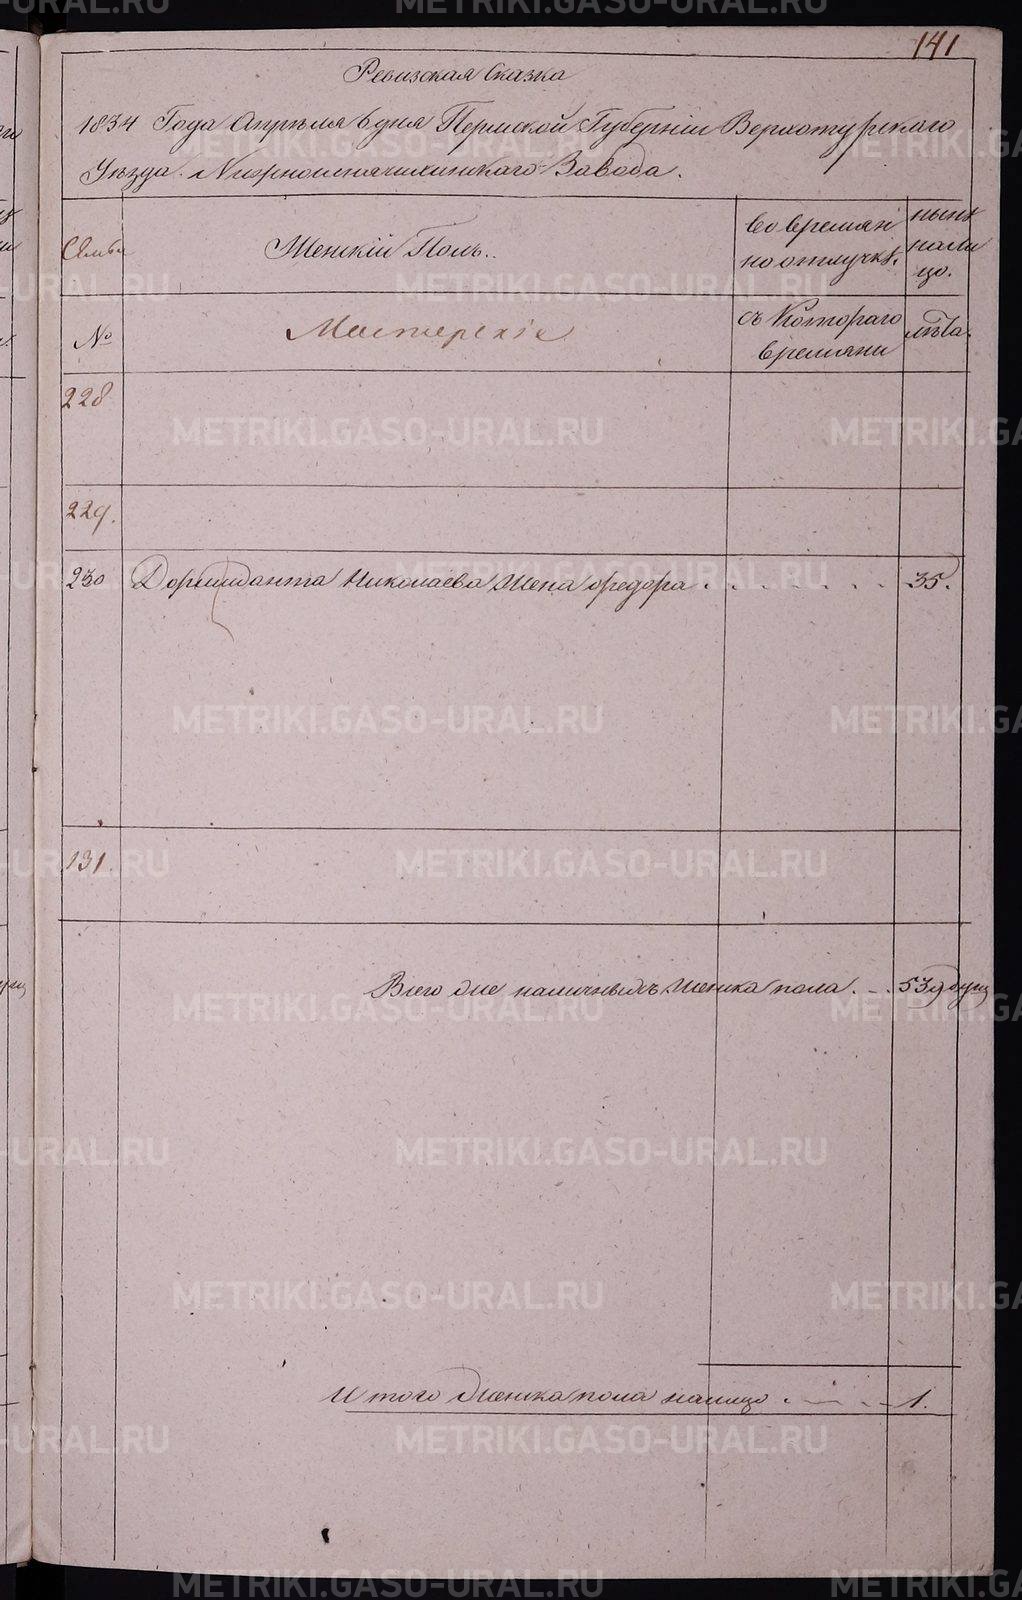 141
Ревизская Сказка
1834 Года Апрѣля 6 дня Пермской Губерніи Верхотурского
Уѣзда Завода.
Семьи
Женскій Полъ..
во времян
но отлучкѣ.
нынѣ
нали
цо.
№
Мастерскіе
съ Котораго
времяни
лѣта.
228
229.
230 Дормидонта Николаева Жена Федора 35.
131
Всего сие наличныхъ женска пола 539 душ
И того Женска пола налицо 1.
METRIKI.GASO-URAL.RU